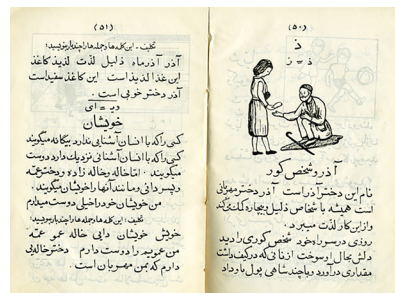 (۵۰)
ذ
ذ = ز
آذر و شخص کور
نام این دختر آذر است آذر دختر مهربانی
است همیشه با شخاص ذلیل و بیچاره کمک میکند
و از این کار لذت میبرد.
روزی در سر راه خود شخص کوری را دید
دلش بحال او سوخت از نانی که در کیف داشت
مقداری در آورد و با چند شاهی پول باو داد
(۵۱)
تکلیف: این کلمه ها و جمله ها را چند بار بنویسید:
آذر آذرماه ذلیل لذت لذیذ کاغذ
این غذا لذیذ است این کاغذ سفید است
آذر دختر خوبی است.
خویشان
کسی را که با انسان آشنائی ندارد بیگانه میگویند
کسی را که با انسان آشنائی نزدیک دارد دوست
میگویند. اما خاله و خاله زاده و دختر عمه
و پسر دائی و مانند آنها را خویشان میگویند.
من خویشان خود را خیلی دوست میدارم
تکلیف: این کلمه ها و جمله ها را چند بار بنویسید:
خویش خویشان دایی خاله عمو عمه
من عمو و عمه را دوست دارم دختر خاله یی
دارم که بمن مهربان است.